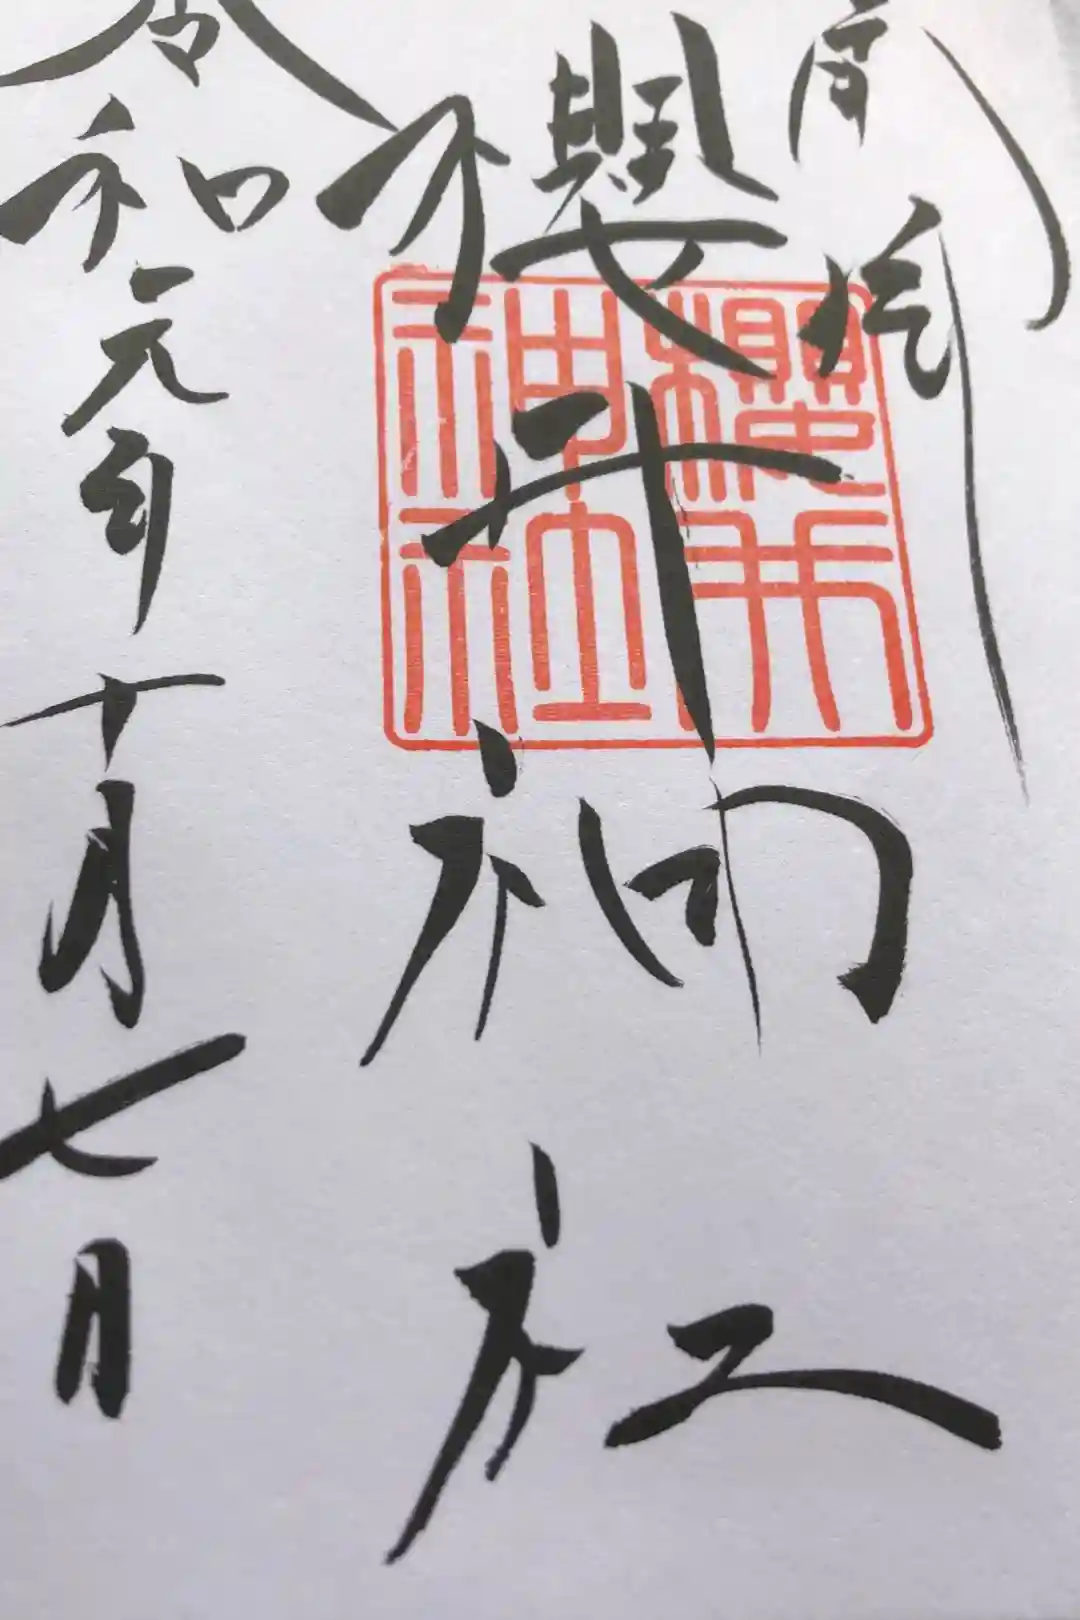 櫻井神社
櫻井
神社
令和元年十月七日